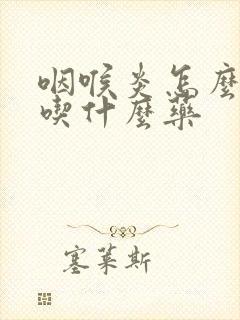 咽喉炎怎麼
喫什麼藥
塞萊斯